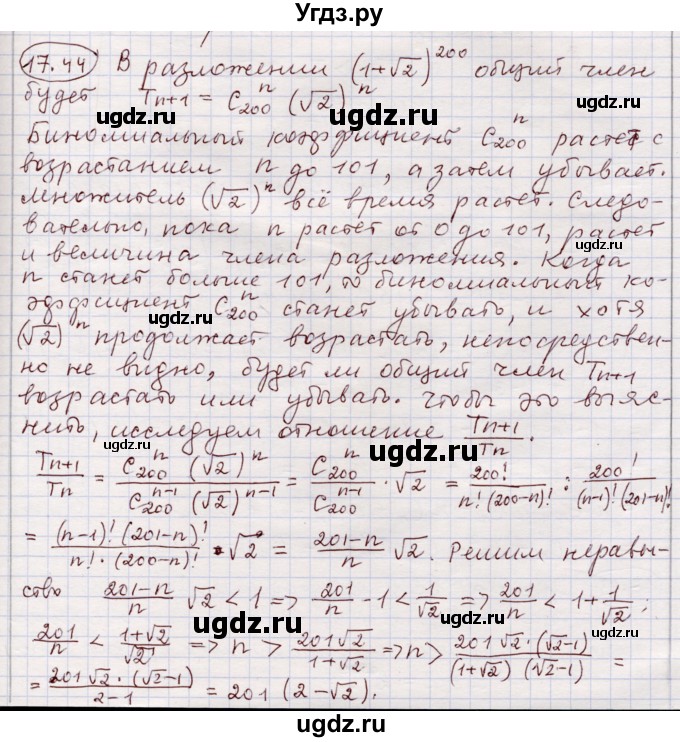 Угдз.ру
17.44 В разложении (1+√2)^200 общий член
будет T_{n+1} = C_200^n (√2)^n
Биномиальный коэффициент C_200^n растет с
возрастанием n до 101, а затем убывает.
Множитель (√2)^n всё время растет. Следо-
вательно, пока n растет от 0 до 101, растет
и величина члена разложения. Когда
n станет больше 101, то биномиальный ко-
эффициент C_200^n станет убывать, и хотя
(√2)^n продолжает возрастать, непосредствен-
но не видно, будет ли общий член T_{n+1}
возрастать или убывать. Чтобы это выяс-
нить, исследуем отношение T_{n+1}/T_n.
T_{n+1}/T_n = C_200^n (√2)^n / C_200^{n-1} (√2)^{n-1} = C_200^n / C_200^{n-1} · √2 = 200! / n! (200-n)! : 200! / (n-1)! (201-n)!
= (n-1)! (201-n)! / n! · (200-n)! · √2 = (201-n)/n √2. Решим неравен-
ство (201-n)/n √2 < 1 => 201/n - 1 < 1/√2 => 201/n < 1 + 1/√2;
201/n < (1+√2)/√2 => n > 201√2 / (1+√2) => n > 201√2 · (√2-1) / (1+√2) (√2-1) =
= 201√2 · (√2-1) / (2-1) = 201 (2-√2).
ugdz.ru
ugdz.ru
ugdz.ru
ugdz.ru
ugdz.ru
ugdz.ru
ugdz.ru
ugdz.ru
ugdz.ru
ugdz.ru
ugdz.ru
ugdz.ru
ugdz.ru
ugdz.ru